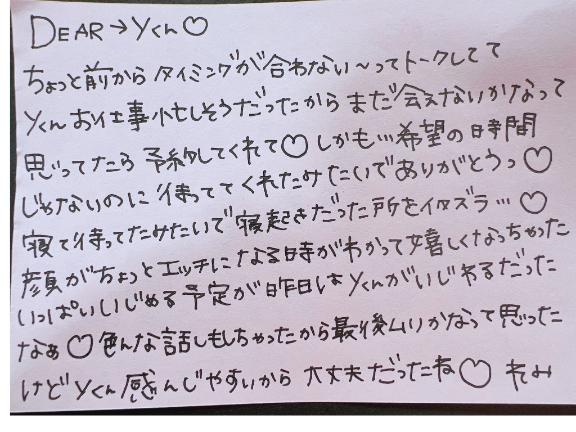 DEAR→Yくん♡
ちょっと前から タイミングが 合わない〜ってトークしてて
Yくん お仕事 忙しそうだったから まだ 会えないかなって
思ってたら 予約してくれて♡ しかも…希望の時間
じゃないのに 待っててくれたみたいでありがとうっ♡
寝て待ってたみたいで 寝起きだった所をイタズラ…♡
顔がちょっとエッチになる時がわかって嬉しくなっちゃった
いっぱいいじめる予定が昨日はYくんがいじわるだった
なぁ♡ 色んな話しもしちゃったから最後ムリかなって思った
けどYくん感んじやすいから 大丈夫だったね♡ れみ